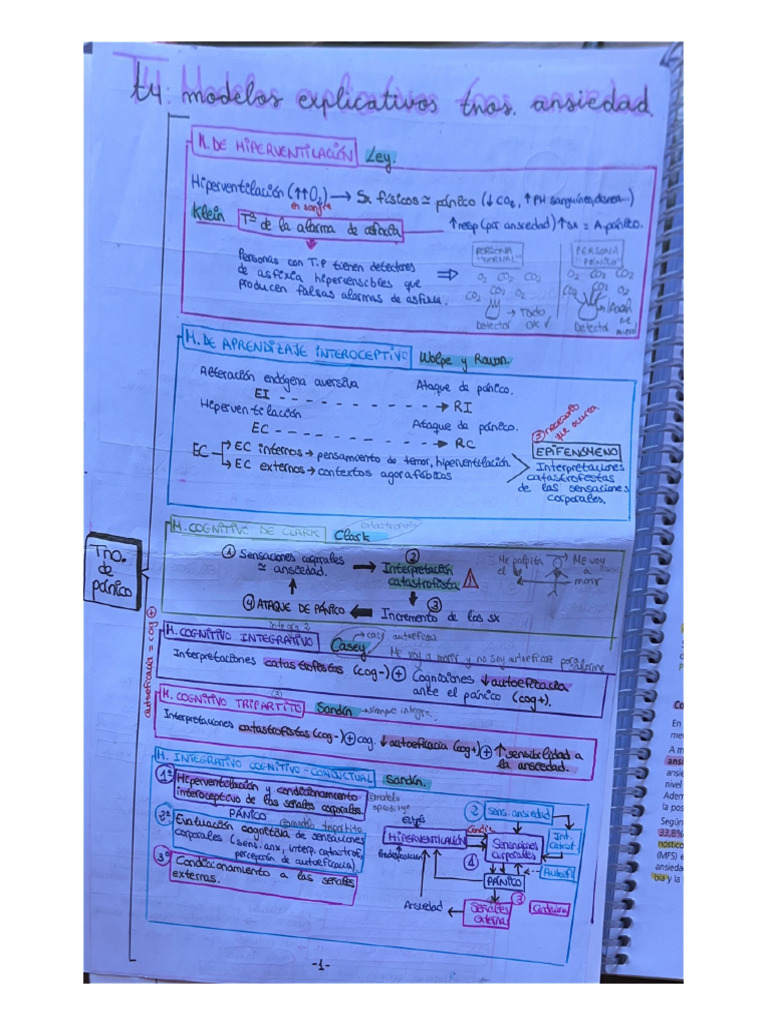 t4: modelos explicativos tnos. ansiedad
Tno.
de
pánico
autoeficacia = cog +
M. DE HIPERVENTILACIÓN Ley.
Hiperventilación (↑↑O₂) → Sx físicos ≃ pánico (↓CO₂, ↑PH sanguíneo, disnea...)
en sangre
↑resp (por ansiedad) ↑SA = A. pánico.
Klein Tª de la alarma de asfixia
Personas con T.P tienen detectores
de asfixia hipersensibles que
producen falsas alarmas de asfixia.
PERSONA
"NORMAL"
O₂ CO₂ CO₂
CO₂ CO₂
→ Todo
Detector OK ✓
PERSONA
"PÁNICO"
O₂ CO₂ CO₂
CO₂ CO₂ O₂
Aaah
me muero!
Detector
M. DE APRENDIZAJE INTEROCEPTIVO Wolpe y Rowan.
Alteración endógena aversiva Ataque de pánico.
EI - - - - → RI
Hiperventilación Ataque de pánico.
EC - - - - → RC
EC → EC internos → pensamiento de temor, hiperventilación.
→ EC externos → contextos agorafóbicos
③ necesario
que ocurra
EPIFENÓMENO
Interpretaciones
catastrofistas
de las sensaciones
corporales.
M. COGNITIVO DE CLARK Clark
catastrofista
① Sensaciones corporales
≃ ansiedad.
②
Interpretación
catastrofista
③
Incremento de los sx
④ ATAQUE DE PÁNICO
Me palpita
el
Me voy
a
morir
integra 2
M. COGNITIVO INTEGRATIVO Casey
→ casi autoeficaz
Me voy a morir y no soy autoeficaz para
Interpretaciones catastrofistas (cog-) + Cogniciones ↓autoeficacia
ante el pánico (cog+).
(3)
M. COGNITIVO TRIPARTITO Sandín → siempre integra.
Interpretaciones catastrofistas (cog-) + cog. ↓autoeficacia (cog+) + ↑sensibilidad a
la ansiedad.
M. INTEGRATIVO COGNITIVO-CONDUCTUAL Sandín.
1º Hiperventilación y condicionamiento
interoceptivo de las señales corporales.
PÁNICO
2º Evaluación cognitiva de sensaciones
corporales (sens. anx, interp. catastrof,
percepción de autoeficacia).
modelo tripartito
3º Condicionamiento a las señales
externas.
modelo
aprendizaje
estrés
HIPERVENTILACIÓN
Condic.
②
Sens. ansiedad
Int.
Catast.
Sensaciones
corporales
①
Autoef.
PÁNICO
③
Señales
externa
Ansiedad
-1-